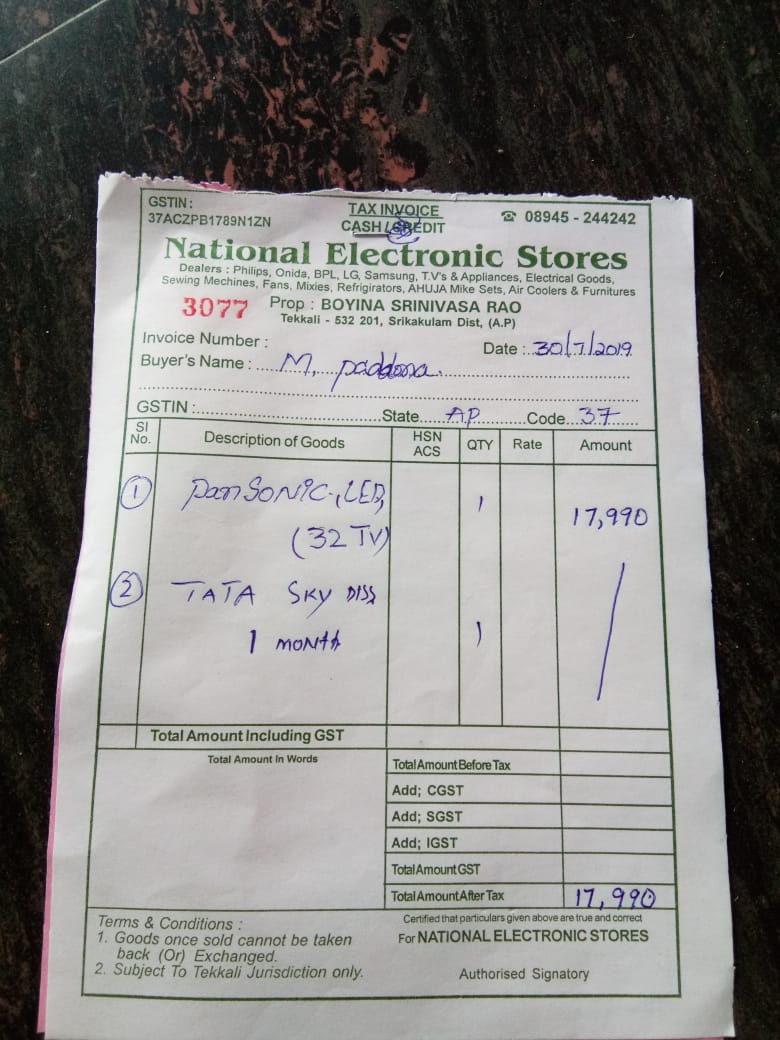 GSTIN :
37ACZPB1789N1ZN
TAX INVOICE
CASH / CREDIT
☎ 08945 - 244242
National Electronic Stores
Dealers : Philips, Onida, BPL, LG, Samsung, T.V's & Appliances, Electrical Goods,
Sewing Mechines, Fans, Mixies, Refrigirators, AHUJA Mike Sets, Air Coolers & Furnitures
3077 Prop : BOYINA SRINIVASA RAO
Tekkali - 532 201, Srikakulam Dist, (A.P)
Invoice Number :
Date : 30/7/2019
Buyer's Name : M.
GSTIN : State AP Code 37
SI No. Description of Goods HSN ACS QTY Rate Amount
1 PanSONIC, LED, 1 17,990
(32 TV)
2 TATA SKY DISS
1 MONTH 1
Total Amount Including GST
Total Amount In Words
Total Amount Before Tax
Add; CGST
Add; SGST
Add; IGST
Total Amount GST
Total Amount After Tax 17,990
Terms & Conditions :
1. Goods once sold cannot be taken
back (Or) Exchanged.
2. Subject To Tekkali Jurisdiction only.
Certified that particulars given above are true and correct
For NATIONAL ELECTRONIC STORES
Authorised Signatory